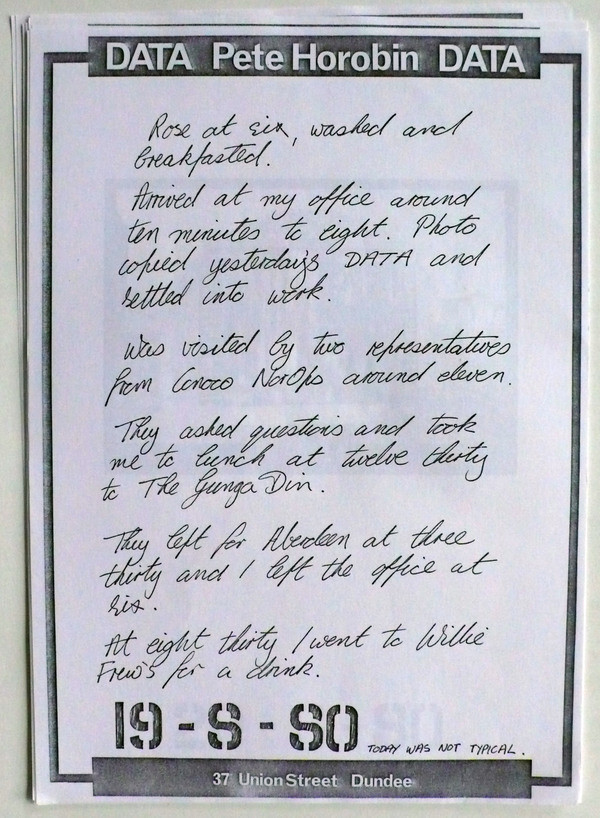 DATA Pete Horobin DATA
Rose at six, washed and
breakfasted.
Arrived at my office around
ten minutes to eight. Photo
copied yesterday's DATA and
settled into work.
Was visited by two representatives
from Conoco NorOps around eleven.
They asked questions and took
me to lunch at twelve thirty
to The Gunga Din.
They left for Aberdeen at three
thirty and I left the office at
six.
At eight thirty I went to Willie
Frew's for a drink.
19-8-80 TODAY WAS NOT TYPICAL.
37 Union Street Dundee